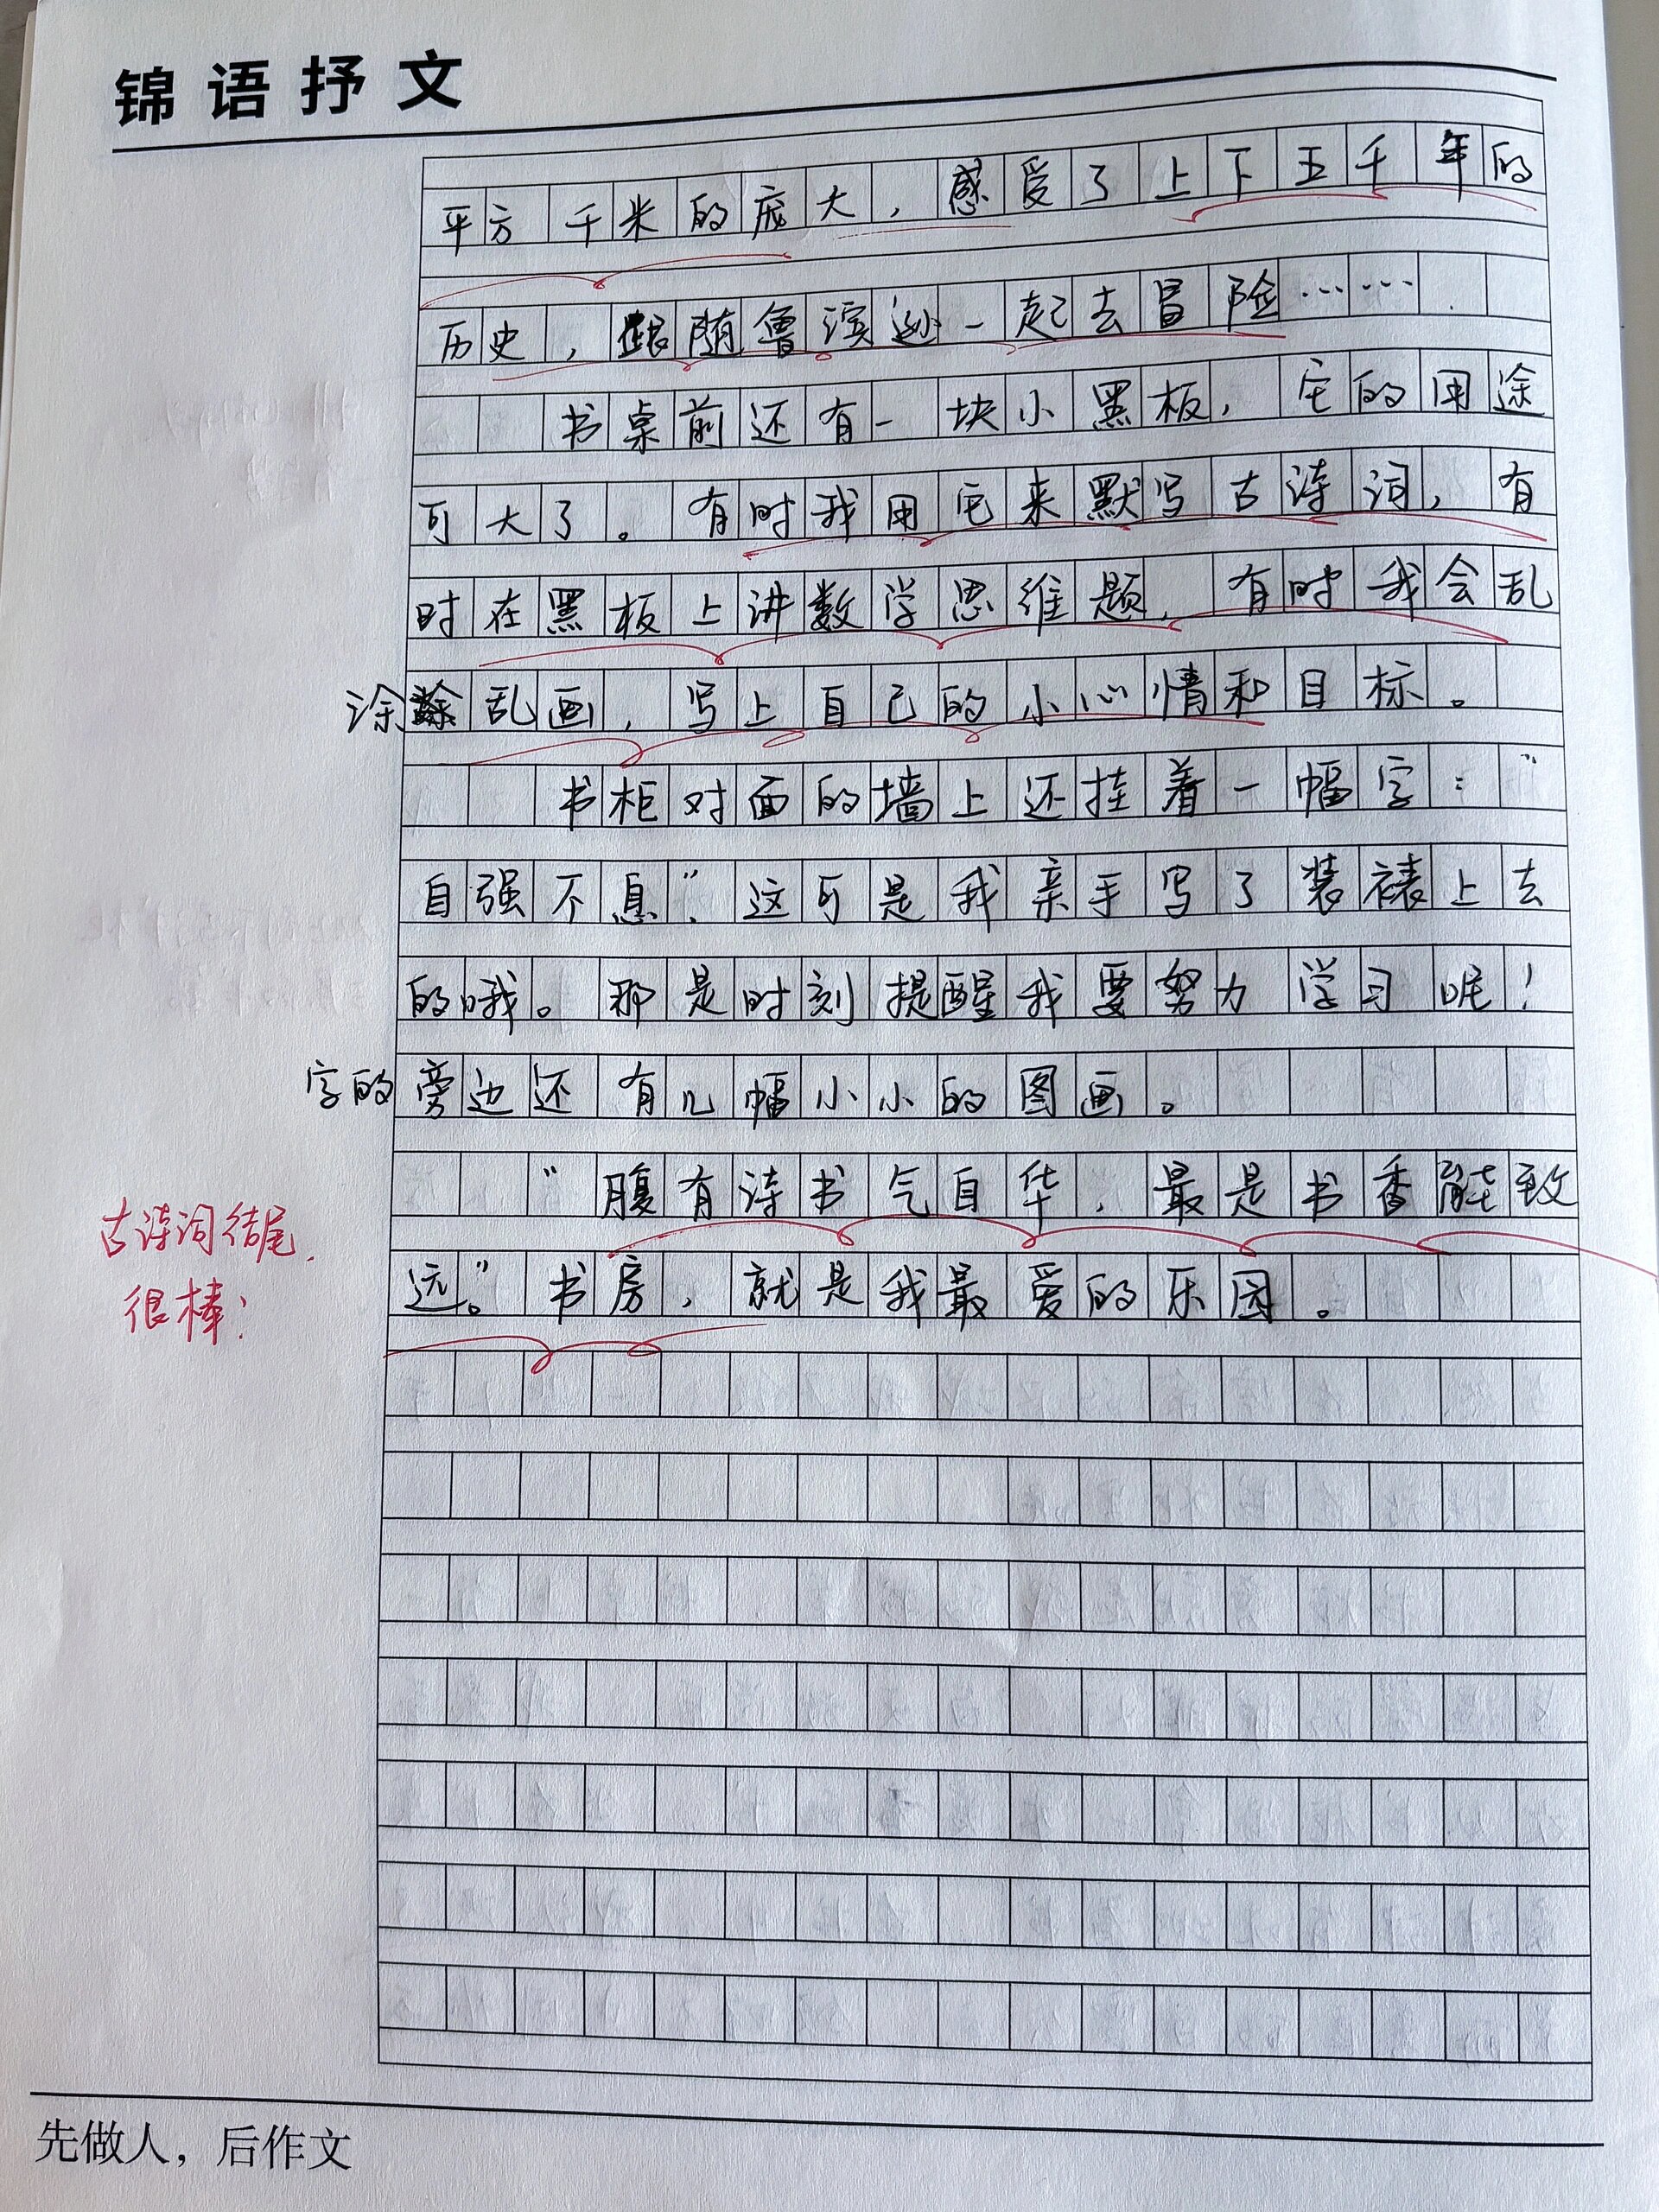 锦语抒文
平方千米的庞大，感受了上下五千年的
历史，跟随鲁滨逊一起去冒险……
书桌前还有一块小黑板，它的用途
可大了。有时我用它来默写古诗词，有
时在黑板上讲数学思维题，有时我会乱
涂乱画，写上自己的小心情和目标。
书柜对面的墙上还挂着一幅字：“
自强不息”，这可是我亲手写了装裱上去
的哦。那是时刻提醒我要努力学习呢！
字的旁边还有几幅小小的图画。
“腹有诗书气自华，最是书香能致
远。”书房，就是我最爱的乐园。
古诗词结尾，
很棒！
先做人，后作文